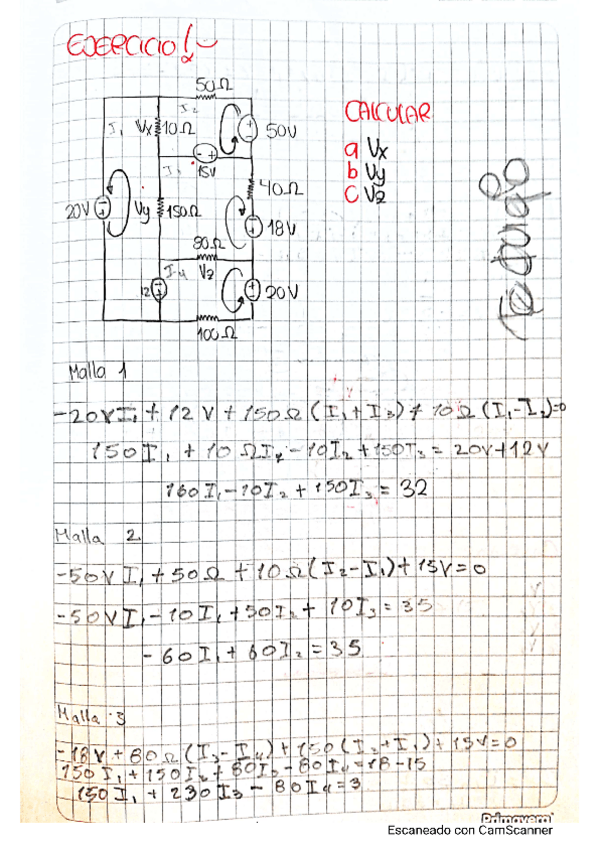 EJERCICIO!
50Ω
I₂
I₁
Vx
10Ω
50V
CALCULAR
a Vx
b Vy
c Vz
15V
I₃
40Ω
20V
Vy
150Ω
18V
80Ω
I4
Vz
12
20V
100Ω
Malla 1
-20VI₁ + 12V + 150Ω (I₁+I₃) + 10Ω (I₁-I₂)=0
150I₁ + 10ΩI₁ - 10I₂ + 150I₃ = 20V+12V
160I₁ - 10I₂ + 150I₃ = 32
Malla 2
-50VI₁ + 50Ω + 10Ω(I₂-I₁) + 15V=0
-50VI₁ - 10I₁ + 50I₂ + 10I₃ = 35
- 60I₁ + 60I₂ = 35
Malla 3
-18V + 80Ω (I₃-I₄) + 150 (I₃+I₁) + 15V=0
150I₁ + 150I₃ + 80I₃ - 80I₄ = 18-15
150I₁ + 230I₃ - 80I₄ = 3
Primavera
Escaneado con CamScanner